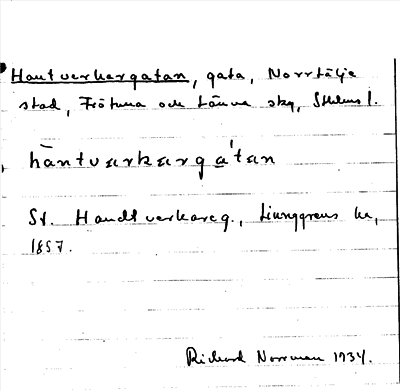 Hantverkargatan, gata, Norrtälje
stad, Frötuna och Länna skg, Sthlms l.
hàntvarkargátan
St. Handtverkareg., Ljunggrens kr,
1857.
Richard Norrman 1934.